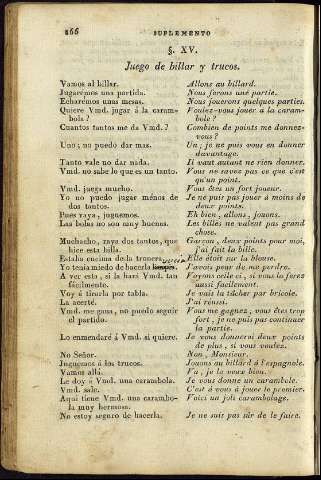 166 SUPLEMENTO
§. XV.
Juego de billar y trucos.
Vamos al billar. Allons au billard.
Jugarémos una partida. Nous ferons une partie.
Echarémos unas mesas. Nous jouerons quelques parties.
Quiere Vmd. jugar á la caram- Voulez-vous jouer à la caram-
bola? bole?
Cuantos tantos me da Vmd.? Combien de points me donnez-
vous?
Uno; no puedo dar mas. Un; je ne puis vous en donner
davantage.
Tanto vale no dar nada. Il vaut autant ne rien donner.
Vmd. no sabe lo que es un tanto. Vous ne savez pas ce que c'est
qu'un point.
Vmd. juega mucho. Vous êtes un fort joueur.
Yo no puedo jugar ménos de Je ne puis pas jouer à moins de
dos tantos. deux points.
Pues vaya, juguemos. Eh bien, allons, jouons.
Las bolas no son muy buenas. Les billes ne valent pas grand
chose.
Muchacho, raya dos tantos, que Garcon, deux points pour moi,
hice esta billa. j'ai fait la bille.
Estaba encima de la tronera. Elle étoit sur la blouse.
Yo tenia miedo de hacerla J'avois peur de me perdre.
A ver esta, si la hará Vmd. tan Voyons celle ci, si vous la ferez
fácilmente. aussi facilement.
Voy á tirarla por tabla. Je vais la tâcher par bricole.
La acerté. J'ai réussi.
Vmd. me gana, no puedo seguir Vous me gagnez, vous êtes trop
el partido. fort, je ne puis pas continuer
la partie.
Lo enmendaré á Vmd. si quiere. Je vous donnerai deux points
de plus, si vous voulez.
No Señor. Non, Monsieur.
Juguemos á los trucos. Jouons au billard à l'espagnole.
Vamos allá. Va, je le veux bien.
Le doy á Vmd. una carambola. Je vous donne un carambole.
Vmd. sale. C'est à vous à jouer le premier.
Aquí tiene Vmd. una carambo- Voici un joli carambolage.
la muy hermosa.
No estoy seguro de hacerla. Je ne suis pas sûr de le faire.